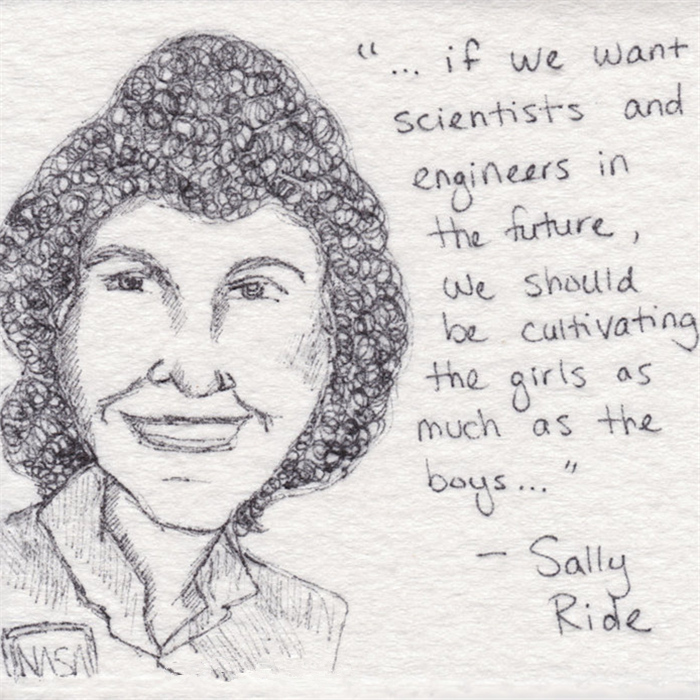 "... if we want
scientists and
engineers in
the future,
we should
be cultivating
the girls as
much as the
boys..."
- Sally
Ride
NASA